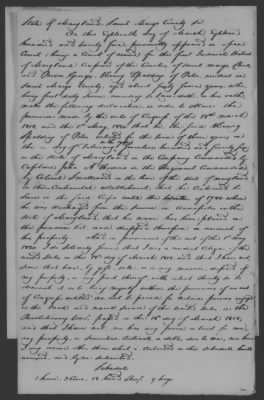 State of Maryland, Saint Marys County Sct
On this Eighteenth day of March Eighteen
hundred and twenty five, personally appeared in open
Court being a Court of record for the first Judicial District
of Maryland Composed of the Counties of Saint Marys Charles
and Prince Georges, Henry Spalding of Peter resident in
Saint Marys County, aged about sixty four years, who
being first duly Sworn according to Law, doth on his oath,
make the following declaration in order to obtain the
provision made by the acts of Congress of the 18th March
1818, and the 1st May 1820, that he the said Henry
Spalding of Peter enlisted for the term of three years
in the year
the of February Seventeen hundred and
in the State of Maryland in the Company Commanded by
Captain John A Thomas in the Regiment Commanded
by Colonel Smallwood in the line of the State of Maryland
in the Continental establishment, that he Continued to
serve in the said Corps until 1780 when
he was discharged from the Service in Annapolis in the
State of Maryland, that his name has been placed on
the pension list and dropped therefrom on account of
his property
1820. I do Solemnly Swear that I was a resident Citizen of the
United States on the 18th day of March 1818, and that I have not
since that time, by gift, sale or in any manner disposed of
my property, or any part thereof, with intent thereby so to
diminish it as to bring myself within the provisions of an act
of Congress entitled an act to provide for certain persons engaged
in the land and naval service of the United States in the
Revolutionary War, passed on the 18th day of March 1818,
and that I have not, nor has any person in trust for me,
any property, or securities, Contracts or debts, due to me, nor have
I any income other than what is contained in the Schedule hereto
annexed, and by me subscribed.
Schedule
1 horse, 3 Cows, 12 head Sheep, 9 hogs